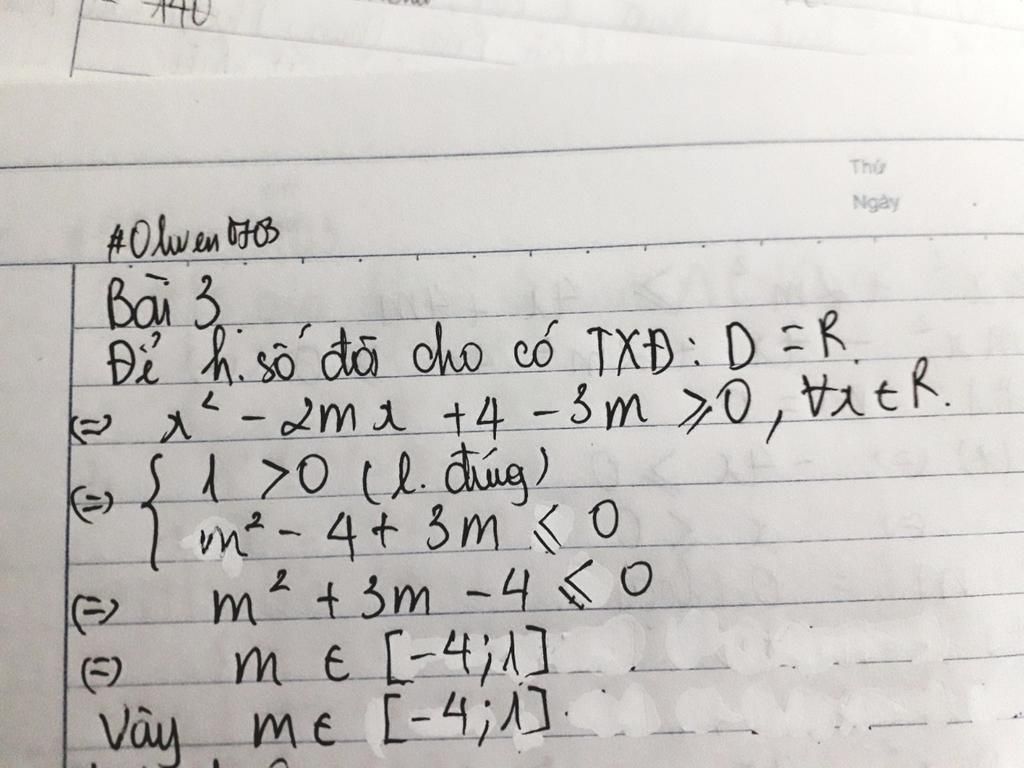 140
Thứ
Ngày
#Olwen0703
Bài 3
Để h.số đã cho có TXĐ: D = R.
<=> x² - 2mx + 4 - 3m ≥ 0, ∀x ∈ R.
<=> { 1 > 0 (l. đúng)
m² - 4 + 3m ≤ 0
<=> m² + 3m - 4 ≤ 0
<=> m ∈ [-4; 1]
Vậy m ∈ [-4; 1].